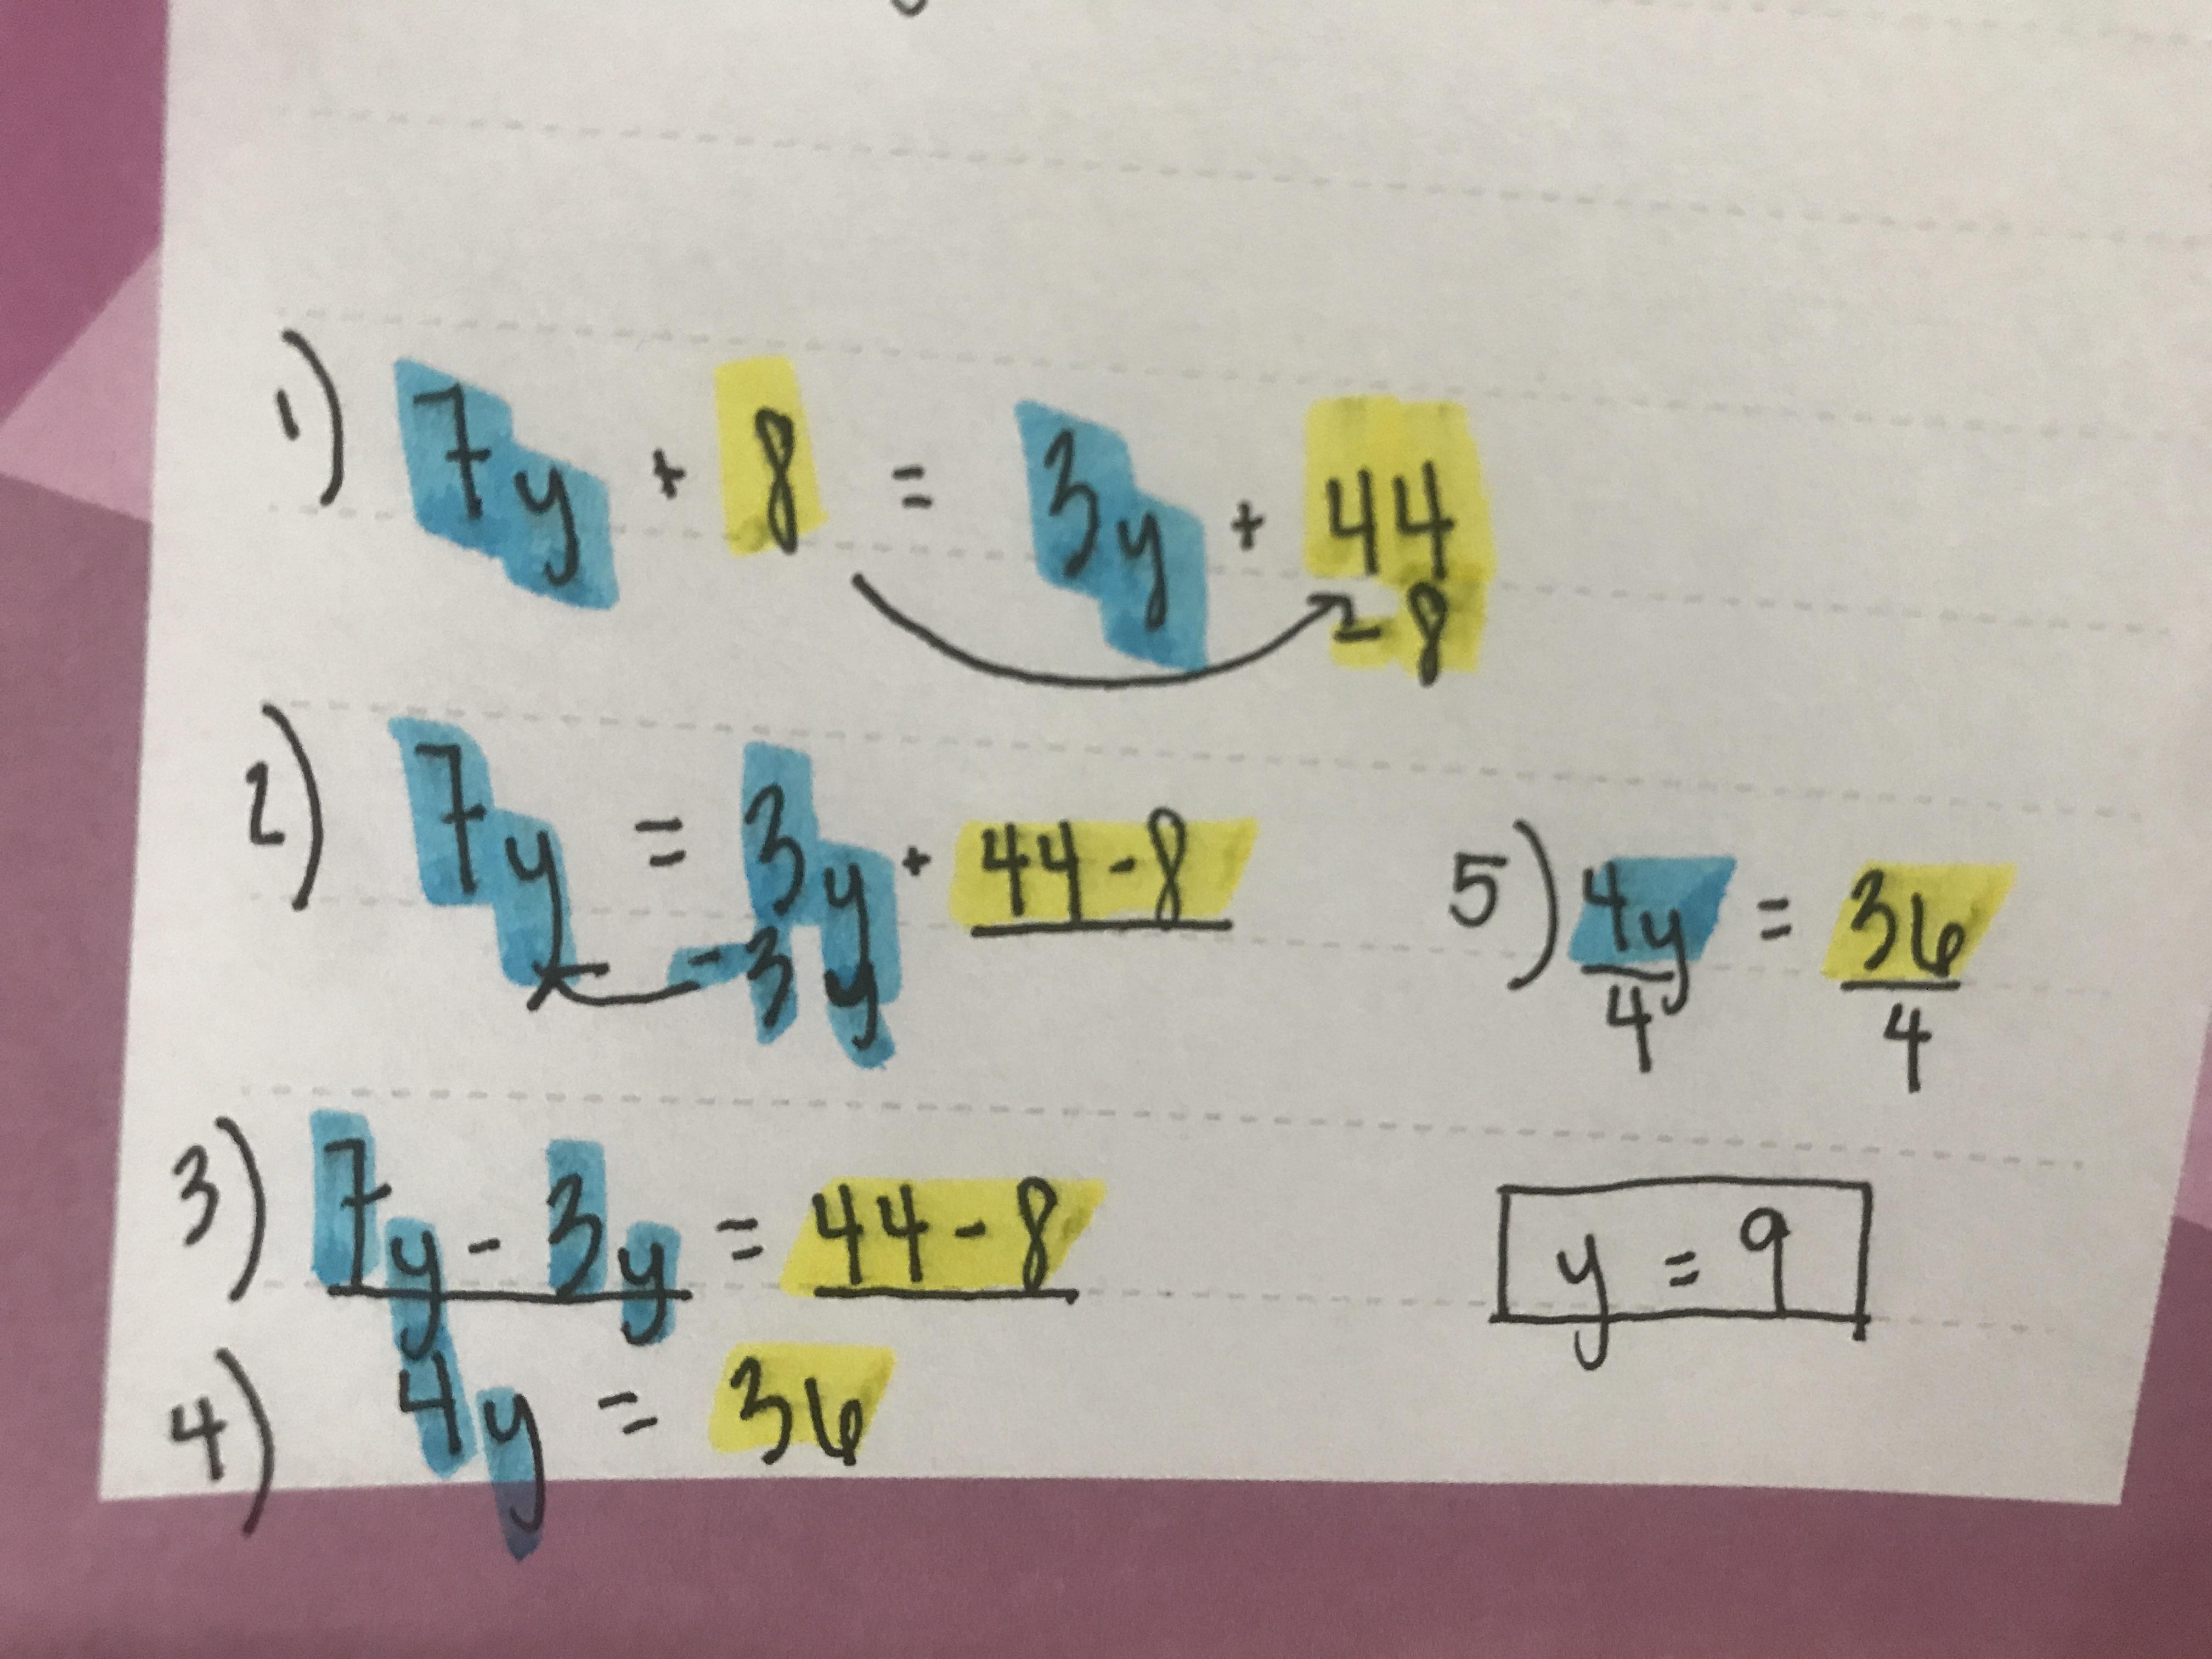 1) 7y + 8 = 3y + 44
- 8
2) 7y = 3y + 44 - 8
- 3y
3) 7y - 3y = 44 - 8
4) 4y = 36
5) 4y = 36
4 4
y = 9